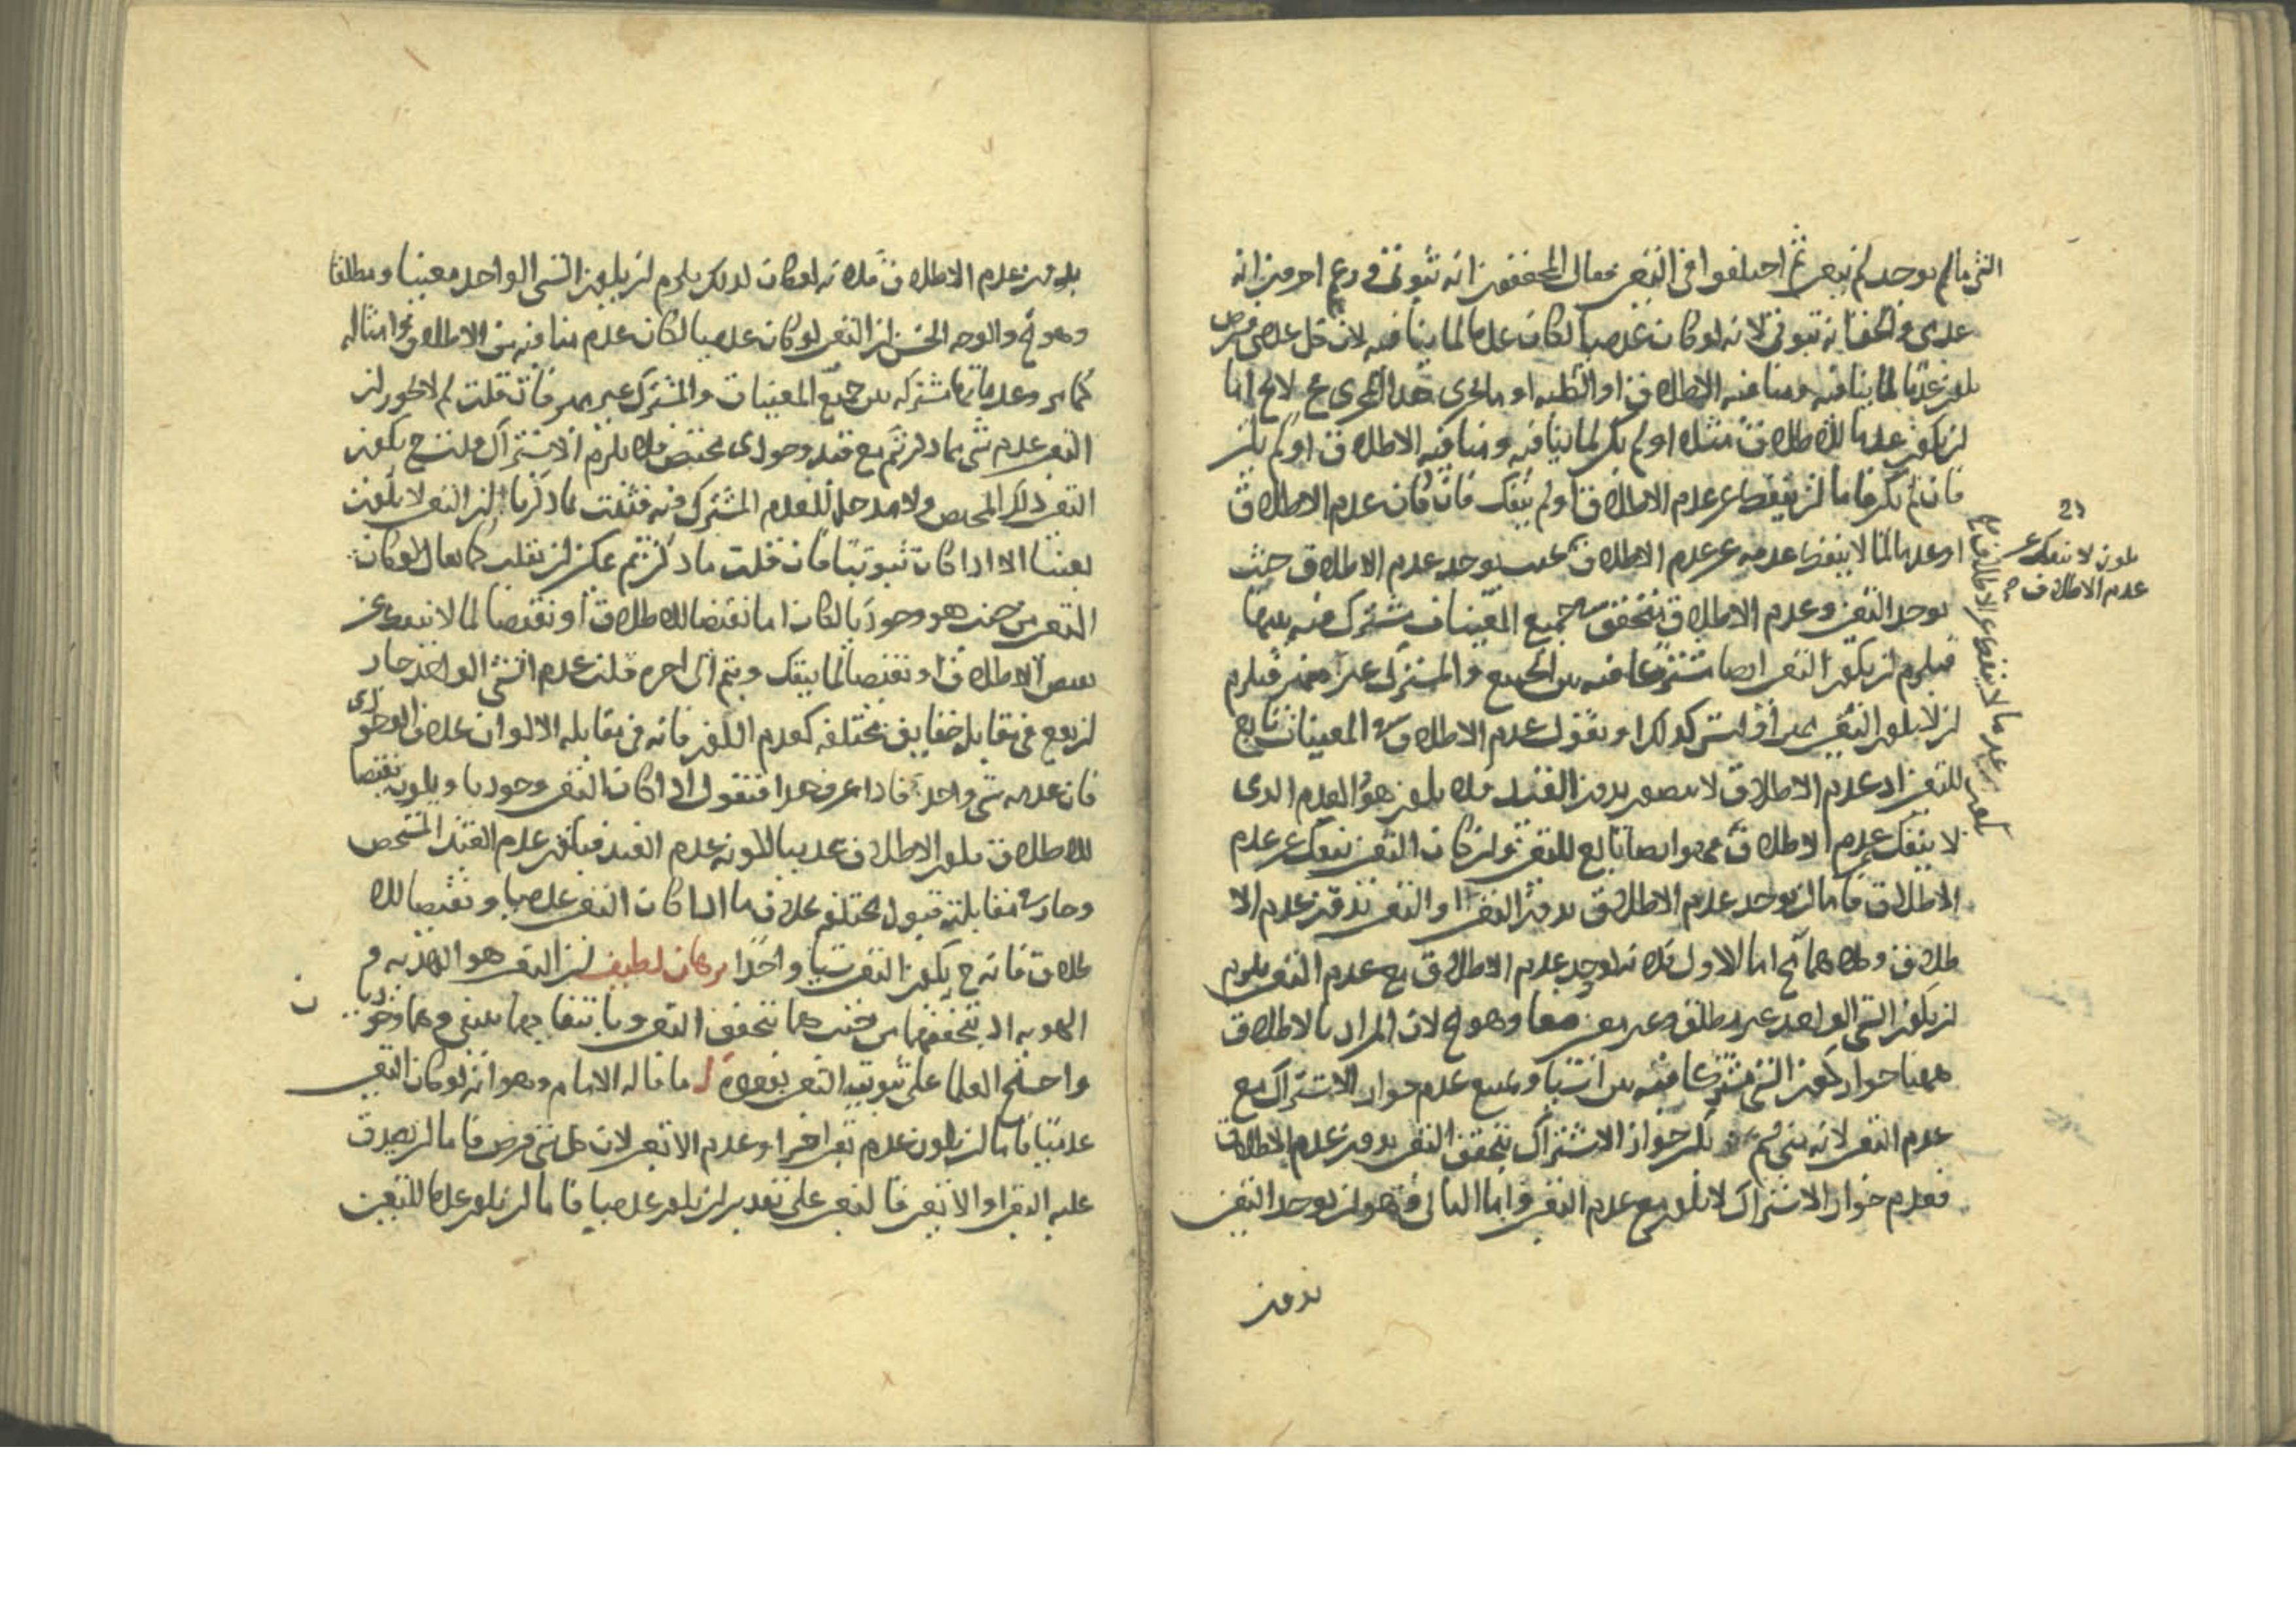 الشى مالم يوجد لم يتعين ثم اختلفوا فى التعين فقال المحققون انه ثبوتى وزعم اخرون انه
عدمى والحق انه ثبوتى لانه لو كان عدميا لكان عدما لما ينافيه لان كل عدمى فرض
يكون عدما لما ينافيه ومنافيه الاطلاق او الكلية او ما يجرى هذا المجرى
لن يكون عدما للاطلاق مثلا او لم يكن لما ينافيه ومنافيه الاطلاق او لم يكن
فان لم يكن فاما لن ينفك عن عدم الاطلاق او لم ينفك فان كان عدم الاطلاق
او عدما لما لا ينفك عدمه عن عدم الاطلاق يوجد عدم الاطلاق حيث
يوجد التعين وعدم الاطلاق يتحقق فى جميع المعينات مشترك فيه بينها
فيلزم لن يكون التعين ايضا مشتركا فيه بين الجميع والمشترك غير مميز فيلزم
لن لا يكون التعين مميزا وليس كذلك او نقول عدم الاطلاق فى المعينات تابع
للتعين اذ عدم الاطلاق لا يتصور بدون القيد فلا يكون هو العدم الذى
لا ينفك عدم الاطلاق فهو ايضا تابع للتعين ولن كان التعين ينفك عن عدم
الاطلاق فاما لن يوجد عدم الاطلاق بدون التعين او التعين بدون عدم الا
طلاق وكلاهما مح اما الاول فلانه لو وجد عدم الاطلاق مع عدم التعين يلزم
لن يكون الشى الواحد غير مطلق وغير معين معا وهو مح لان المراد بالاطلاق
ههنا جواز كون الشى مشتركا فيه بين اشياء ويمتنع عدم جواز الاشتراك مع
عدم التعين لانه متى لم يكن جواز الاشتراك يتحقق التعين بدون عدم الاطلاق
فعدم جواز الاشتراك لا يكون مع عدم التعين واما الثانى وهو لن يوجد التعين
بدون
يكون لا ينفك عن
عدم الاطلاق
بدون عدم الاطلاق فلانه لو كان كذلك يلزم لن يكون الشى الواحد معينا ومطلقا
وهو مح والوجه الحسن لن التعين لو كان عدميا لكان عدم منافيه من الاطلاق وامثاله
كما مر وعدماتها مشتركة بين جميع المعينات والمشترك غير مميز فان قلت لم لا يجوز لن
التعين عدم شى مما ذكرتم مع قيد وجودى مختص فلا يلزم الاشتراك قلت ح يكون
التعين ذلك المختص ولا مدخل للعدم المشترك فيه فثبت بما ذكرنا لن التعين لا يكون
تعينا الا اذا كان ثبوتيا فان قلت ما ذكرتم يمكن لن يقلب كما يقال لو كان
التعين من حيث هو وجوديا لكان اما نقيضا للاطلاق او نقيضا لما لا ينفك عن
نقيض الاطلاق او نقيضا لما ينفك ويتم الى اخره قلت عدم الشى الواحد جاز
لن يقع فى مقابله حقايق مختلفة كعدم اللون فانه فى مقابلة الالوان بخلاف الوجودى
فان عدمه شى واحد فاذا عرف هذا فنقول اذا كان التعين وجوديا ويكون نقيضا
للاطلاق يكون الاطلاق عدميا لكونه عدم القيد فيكون عدم القيد المشخص
وجاز فى مقابلته قيود مختلفة بخلاف ما اذا كان التعين عدميا ونقيضا للا
طلاق فانه ح يكون التعين شيا واحدا برهان لطيف لن التعين هو الهذية و
الهوية اذ بتحققهما من حيث هما يتحقق التعين وبانتفائهما ينتفى وهما وجوديان
واحتج العلما على ثبوتية التعين بوجوه ا ما قاله الامام وهو انه لو كان التعين
عدميا فاما لن يكون عدم تعين اخر او عدم الا تعين لان كل شى فرض فاما لن يصدق
عليه التعين او الا تعين فالتعين على تقدير لن يكون عدميا فاما لن يكون عدما للتعين